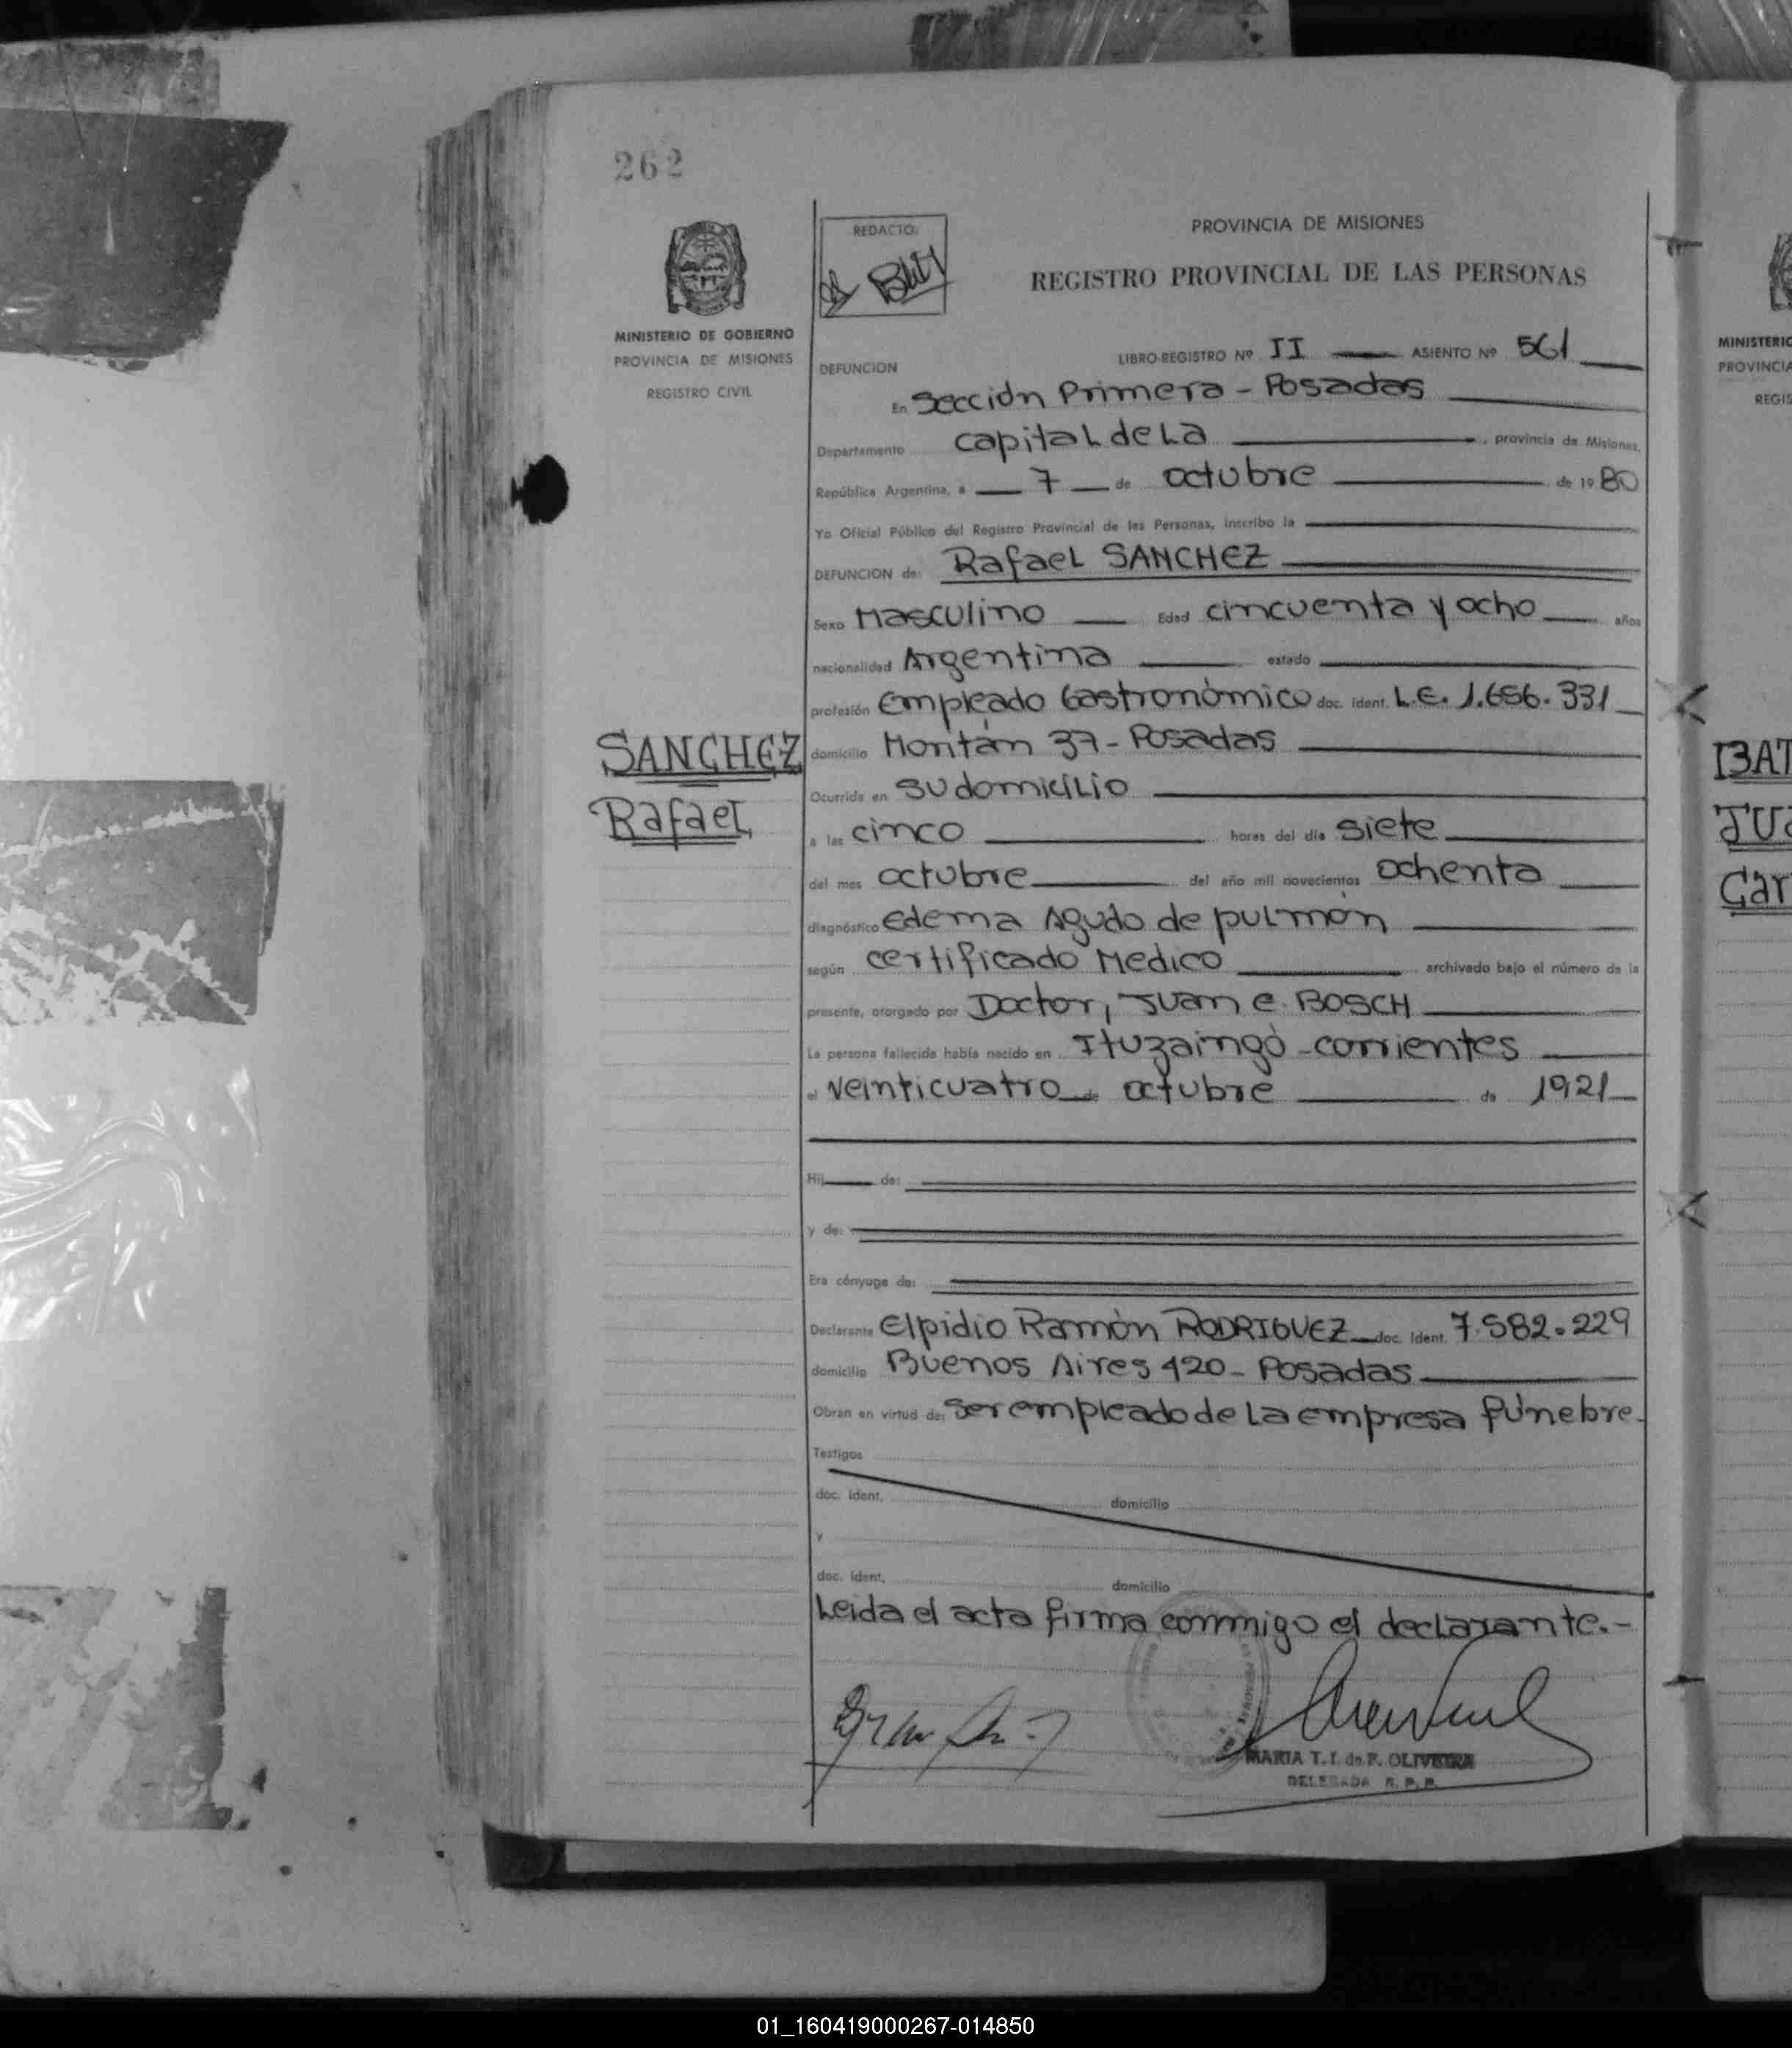 262
MINISTERIO DE GOBIERNO
PROVINCIA DE MISIONES
REGISTRO CIVIL
SANCHEZ
Rafael
REDACTO:
PROVINCIA DE MISIONES
REGISTRO PROVINCIAL DE LAS PERSONAS
DEFUNCION LIBRO-REGISTRO Nº II ASIENTO Nº 561
En Sección Primera - Posadas
Departamento Capital de La provincia de Misiones,
República Argentina, a 7 de octubre de 1980
Yo Oficial Público del Registro Provincial de las Personas, inscribo la
DEFUNCION de: Rafael SANCHEZ
Sexo Masculino Edad cincuenta y ocho años
nacionalidad Argentina estado
profesión Empleado Gastronómico doc. ident. L.E. 1.656.331
domicilio Montán 37 - Posadas
Ocurrida en su domicilio
a las cinco horas del día siete
del mes octubre del año mil novecientos ochenta
diagnóstico Edema Agudo de pulmón
según certificado Medico archivado bajo el número de la
presente, otorgado por Doctor, Juan C. BOSCH
La persona fallecida había nacido en Ituzaingó - corrientes
el veinticuatro de octubre de 1921
Hij de:
y de:
Era cónyuge de:
Declarante Elpidio Ramón RODRIGUEZ doc. Ident. 7.582.229
domicilio Buenos Aires 420 - Posadas
Obran en virtud de: Ser empleado de La empresa fúnebre.
Testigos
doc. ident. domicilio
y
doc. ident. domicilio
Leida el acta firma conmigo el declarante.-
MARIA T. I. de F. OLIVEIRA
DELEGADA R. P. P.
MINISTERIO
PROVINCIA
REGIS
01_160419000267-014850